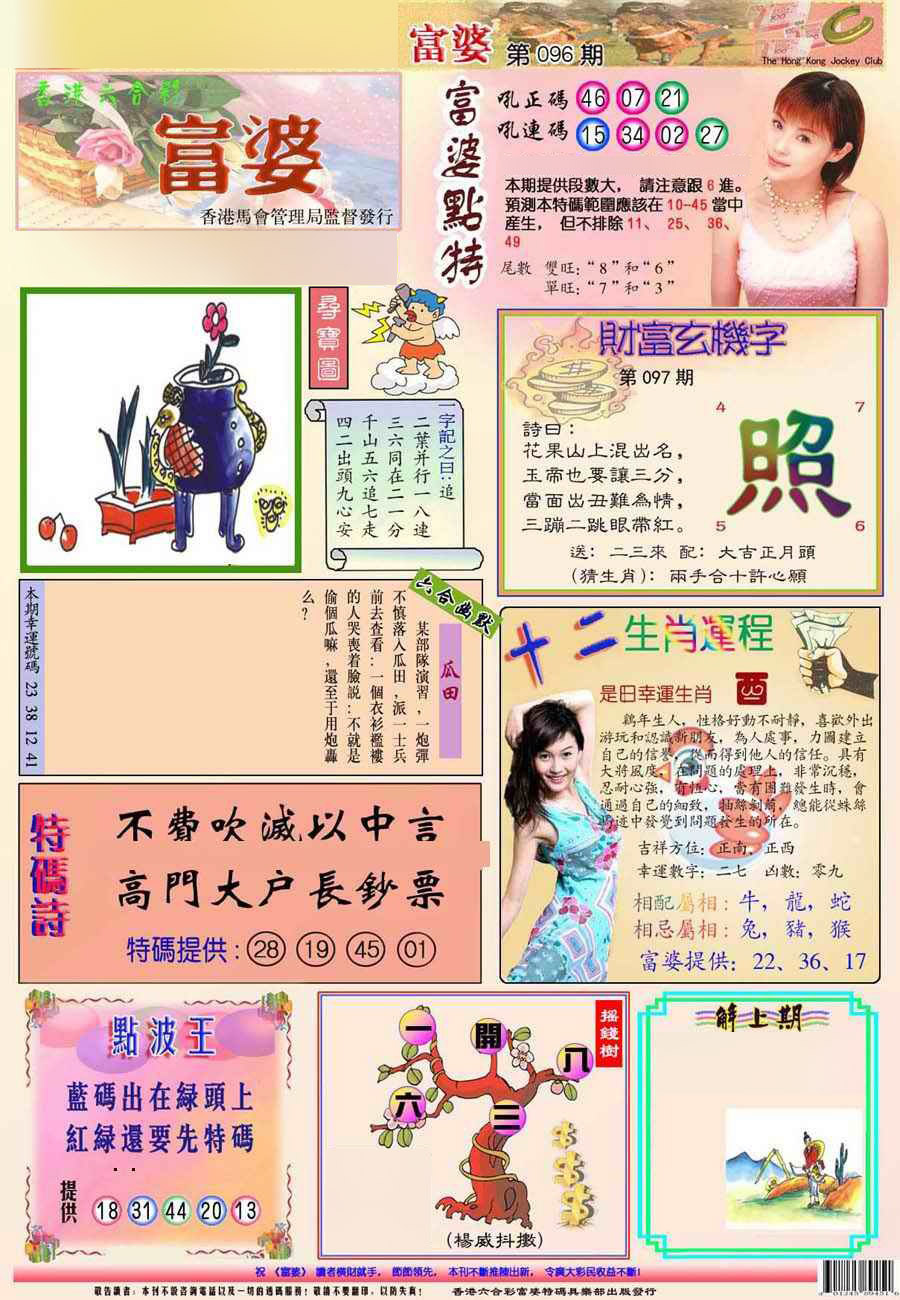 富婆 第 096 期
The Hong Kong Jockey Club
香港六合彩
富婆
香港馬會管理局監督發行
富婆點特
吼正碼 46 07 21
吼連碼 15 34 02 27
本期提供段數大， 請注意跟 6 進。
預測本特碼範圍應該在 10-45 當中
産生， 但不排除 11、 25、 36、
49
尾數 雙旺：“8”和“6”
單旺：“7”和“3”
尋寶圖
一字記之曰：追
二葉并行一八連
三六同在二一分
千山五六追七走
四二出頭九心安
財富玄機字
第 097 期
詩曰：
花果山上混出名，
玉帝也要讓三分，
當面出丑難為情，
三蹦二跳眼帶紅。
4 7
照
5 6
送： 二三來 配： 大吉正月頭
(猜生肖)： 兩手合十許心願
本期幸運號碼 23 38 12 41
六合幽默
瓜田
某部隊演習，一炮彈
不慎落入瓜田，派一士兵
前去查看：一個衣衫襤褸
的人哭喪着臉說：不就是
偷個瓜嘛，還至于用炮轟
么？
十二生肖運程
是日幸運生肖 酉
鷄年生人，性格好動不耐靜，喜歡外出
游玩和認識新朋友，為人處事，力圖建立
自己的信譽，從而得到他人的信任。具有
大將風度，在問題的處理上，非常沉穩，
忍耐心強，有恆心，當有困難發生時，會
通過自己的細致，抽絲剝繭，總能從蛛絲
馬迹中發覺到問題發生的所在。
吉祥方位：正南、正西
幸運數字：二七 凶數：零九
相配屬相：牛，龍，蛇
相忌屬相：兔，豬，猴
富婆提供：22、36、17
特碼詩
不費吹滅以中言
高門大户長鈔票
特碼提供：28 19 45 01
點波王
藍碼出在緑頭上
紅緑還要先特碼
提供 18 31 44 20 13
搖錢樹
一 開 八
六 三
(楊威抖擻)
解上期
祝 《富婆》 讀者橫財就手， 節節領先， 本刊不斷推陳出新， 令廣大彩民收益不斷!
敬告讀者：本刊不設咨詢電話以及一切的透碼服務! 敬請不要翻印，以防失真! 香港六合彩富婆特碼具樂部出版發行